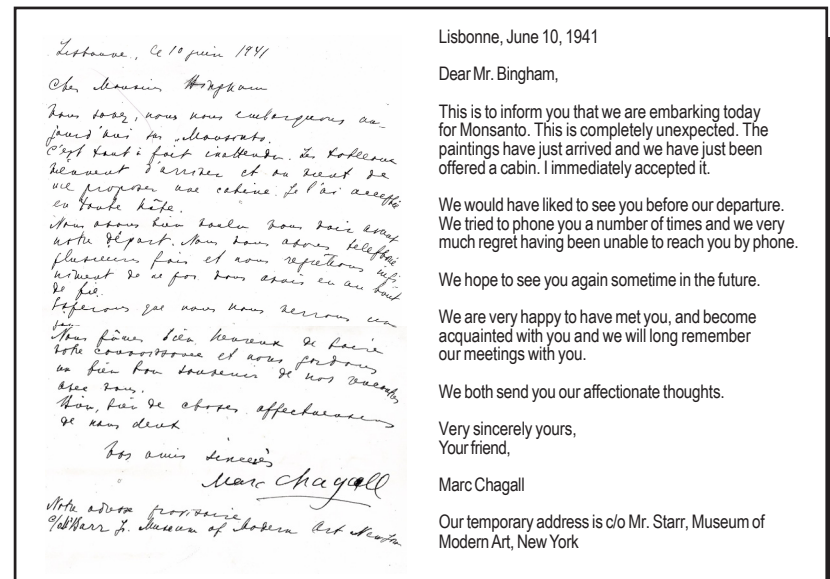 Lisbonne, le 10 juin 1941
Cher Monsieur Bingham
nous nous embarquons au-
jourd'hui sur
C'est tout à fait inattendu. Les tableaux
viennent d'arriver et on vient de
me proposer une cabine. Je l'ai accepté
en toute hâte.
Nous avons bien voulu vous voir avant
notre départ. Nous vous avons téléphoné
plusieurs fois et nous regrettons infi-
niment de ne pas vous avoir eu au bout
de fil.
Espérons que nous nous verrons un
Nous fûmes bien heureux de faire
votre connaissance et nous gardons
un bien bon souvenir de nos rencontres
avec vous.
Bien, bien de choses affectueuses
de nous deux
Vos amis sincères
Marc Chagall
Notre adresse provisoire
Museum of Modern Art New
Lisbonne, June 10, 1941
Dear Mr. Bingham,
This is to inform you that we are embarking today
for Monsanto. This is completely unexpected. The
paintings have just arrived and we have just been
offered a cabin. I immediately accepted it.
We would have liked to see you before our departure.
We tried to phone you a number of times and we very
much regret having been unable to reach you by phone.
We hope to see you again sometime in the future.
We are very happy to have met you, and become
acquainted with you and we will long remember
our meetings with you.
We both send you our affectionate thoughts.
Very sincerely yours,
Your friend,
Marc Chagall
Our temporary address is c/o Mr. Starr, Museum of
Modern Art, New York